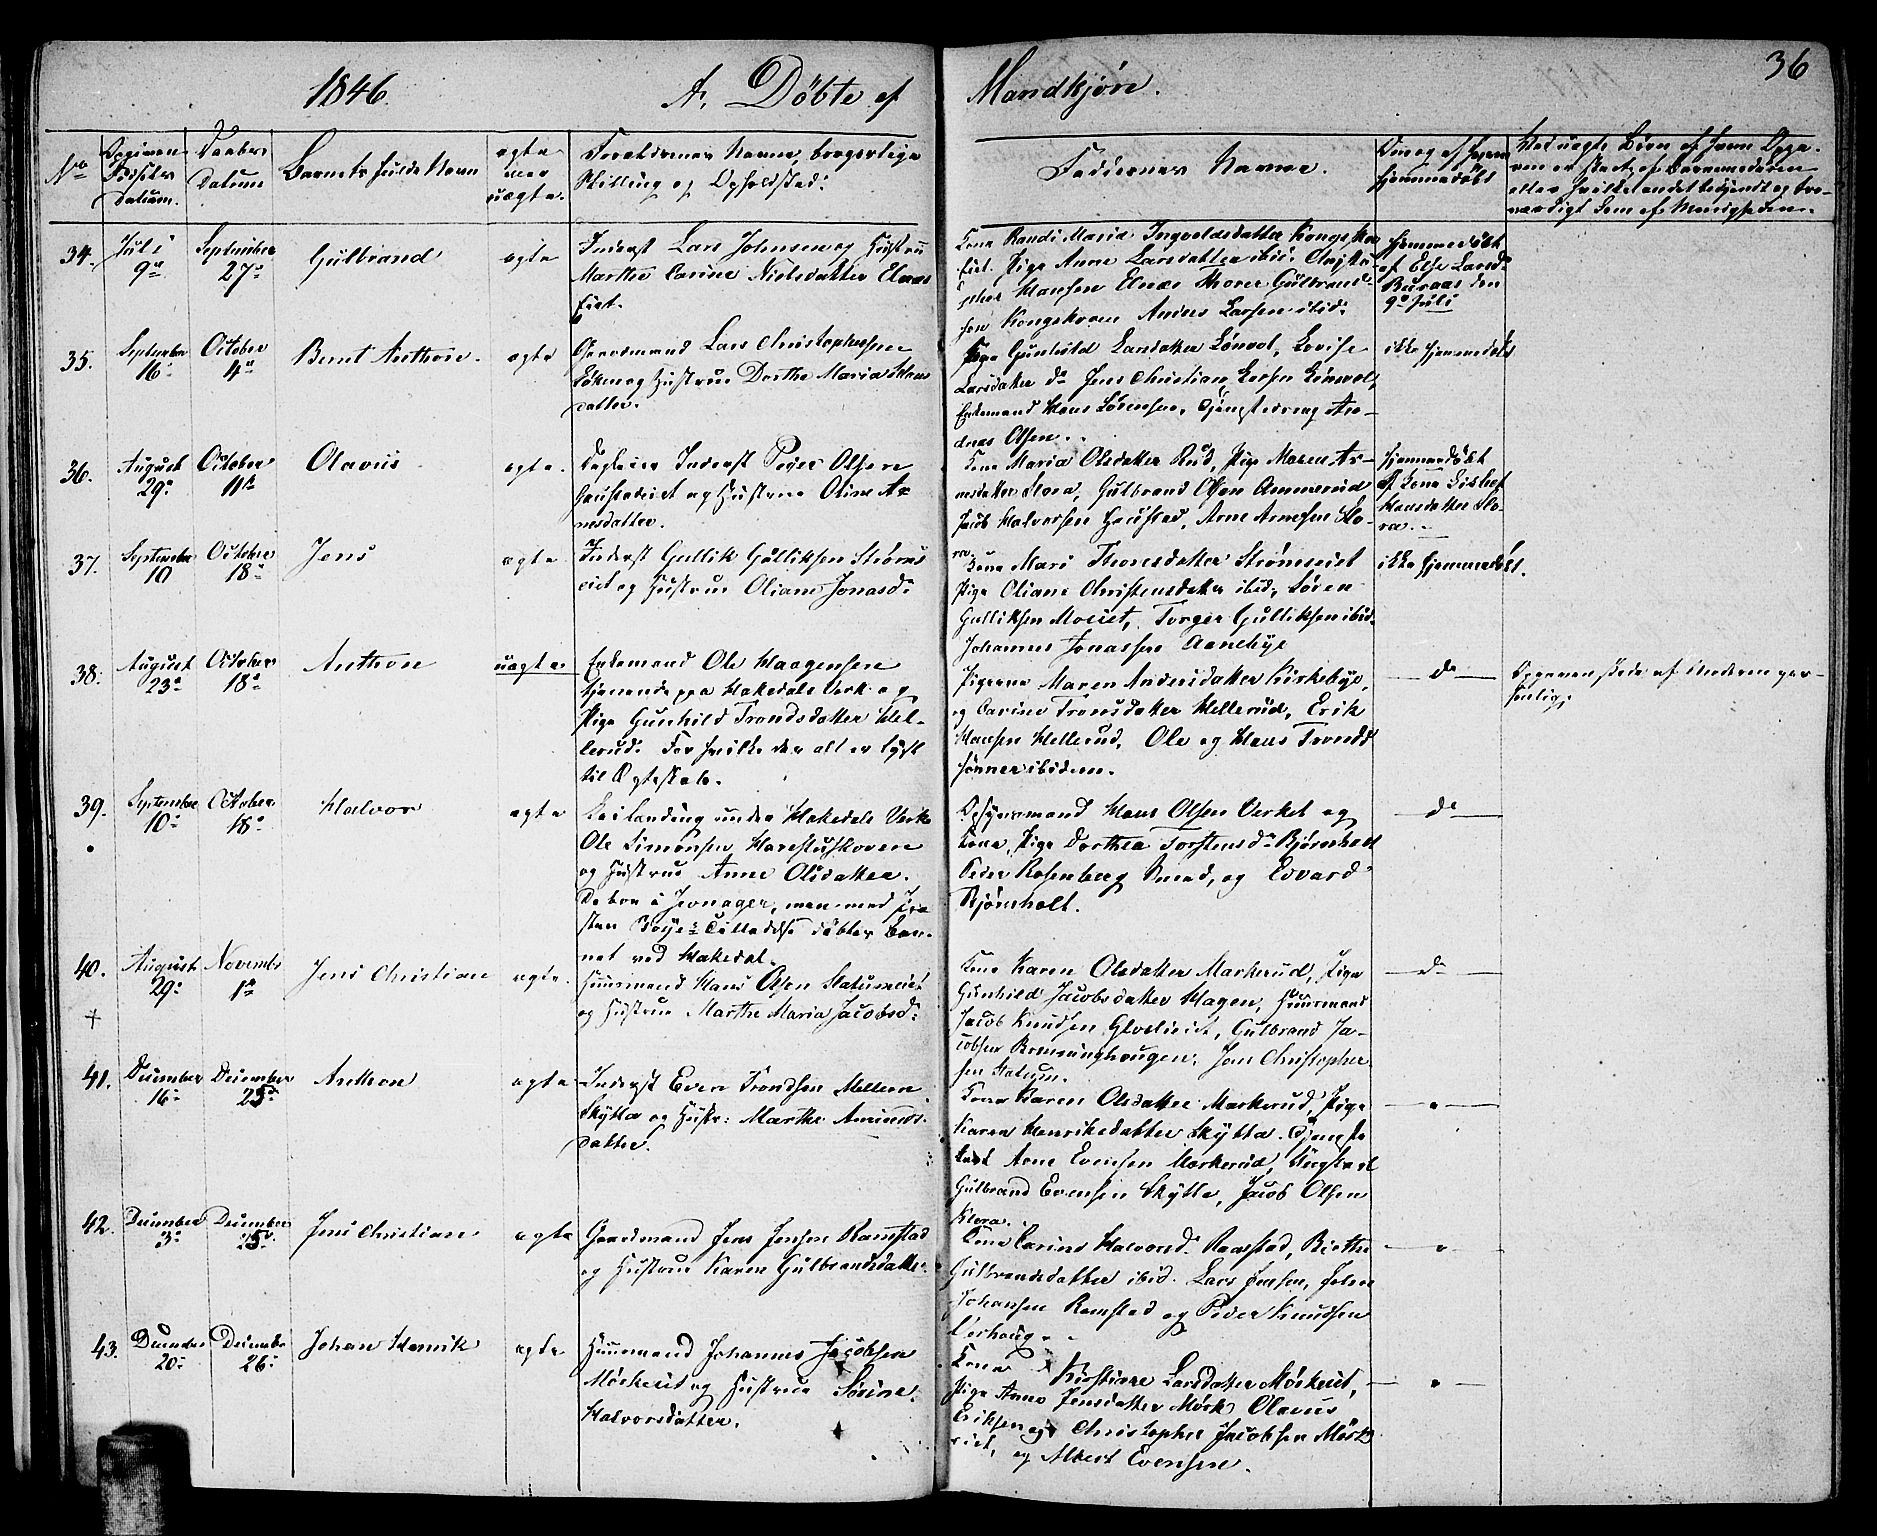 1846.
A. Døbte af Mandkjøn.
36
No
Datum.
Daabens Datum
Barnets fulde Navn
ægte eller uægte.
Forældrenes Navne, borgerlige
Stilling og Opholdsted.
Faddernes Navne.
34. Juli 9de September 27de Gulbrand ægte
Inderst Lars Johnsen og Hustru
Marthe Carine Nielsdatter Elnæs
eiet.
Kone Randi Maria Ingvoldsdatter Kongsko
Pige Anne Larsdatter ibid. Christo
pher Hansen Elnæs Thorer Gulbrand
sen Kongskoven Anders Larsen ibid:
Hjemmedøbt
af Else Larsd:
Buraas den
9de Juli
35. September 16de October 4de Bernt Anthon. ægte
Gaardmand Lars Christophersen
og Hustrue Dorthe Maria Hans
datter.
Pige Gunhild Larsdatter Lovise
Larsdatter do Jens Christian Larsen
Enkemand Hans Sørensen, An-
dreas Olsen.
ikke hjemmedøbt
36. August 29de October 11te Olavus ægte.
Inderst Peder Olsen
Haustadeiet og Hustrue Oline Ar
nesdatter.
Kone Maria Olsdatter Rud, Pige Maren Ar-
nesdatter Slora, Gulbrand Olsen Ammerud
Jacob Halvorsen Haustad, Arne Arnesen Slo-
ra.
Hjemmedøbt
af Kone Lisbet
Hansdatter Slo-
ra.
37. September 10 October 18de Jens ægte
Inderst Gullik Gulliksen Strøms
eiet og Hustrue Oliane Jonasd:
Kone Mari Thoresdatter Strømseiet
Pige Oliane Christensdatter ibid, Søren
Gulliksen Moeiet, Torger Gulliksen ibid.
Johannes Jonassen Aanebye
ikke hjemmedøbt.
38. August 23de October 18de Anthon uægte
Enkemand Ole Haagensen
tjenende paa Hakedals Verk og
Pige Gunhild Trondsdatter Hel-
lerud. For hvilke der alt er lyst
til Ægteskab.
Pigerne Maren Andersdatter Kirkebye,
og Carine Tronsdatter Hellerud, Erik
Hansen Hellerud, Ole og Hans Tronds
sønner ibidem.
do
Opgaven skede af Moderen per-
sonlig.
39. September 10de October 18de Halvor ægte
under Hakedals Verk
Ole Simonsen Harestuskoven
og Hustrue Anne Olsdatter.
De boe i Jevnager, men med Præ
sten Tilladelse døbtes Bar-
net ved Hakedal.
Hans Olsen Verket og
Kone, Pige Dorthea Torstensd: Bjørnholt
Peder Rosenberg Smed, og Edvard
Bjørnholt.
do
40. August 29de Novemb: 1te Jens Christian ægte.
Huusmand Hans Olsen Slatumeiet
og Hustrue Marthe Maria Jacobsd:
Kone Karen Olsdatter Markerud, Pige
Gunhild Jacobsdatter Hagen, Huusmand
Jacob Knudsen Gulbrand Ja-
cobsen Jon Christopher
sen Slatum.
do
41. December 16de December 25de Anthon ægte
Inderst Even Trondsen Mellem
Skytta og Hustr: Marthe Amunds
datter.
Kone Karen Olsdatter Markerud, Pige
Karen Henriksdatter Skytta.
Arne Evensen Markerud, Ungkarl
Gulbrand Evensen Skytta, Jacob Olsen
Klora.
42. December 3de December 25de Jens Christian ægte
Gaardmand Jens Jensen Ramstad
og Hustrue Karen Gulbrandsdatter.
Kone Carine Halvorsd: Ramstad, Birthe
Gulbrandsdatter ibid. Lars Jensen, John
Johansen Ramstad og Peder Knudsen
43. December 20de December 26de Johan Henrik ægte
Huusmand Johannes Jacobsen
Mørkeiet og Hustrue Sørine
Halvorsdatter.
Kone Kirstine Larsdatter Mørkeiet,
Pige Anne Jensdatter Mørk Olavus
Eriksen og Christopher Jacobsen Mørk
eiet, og Albert Evensen.